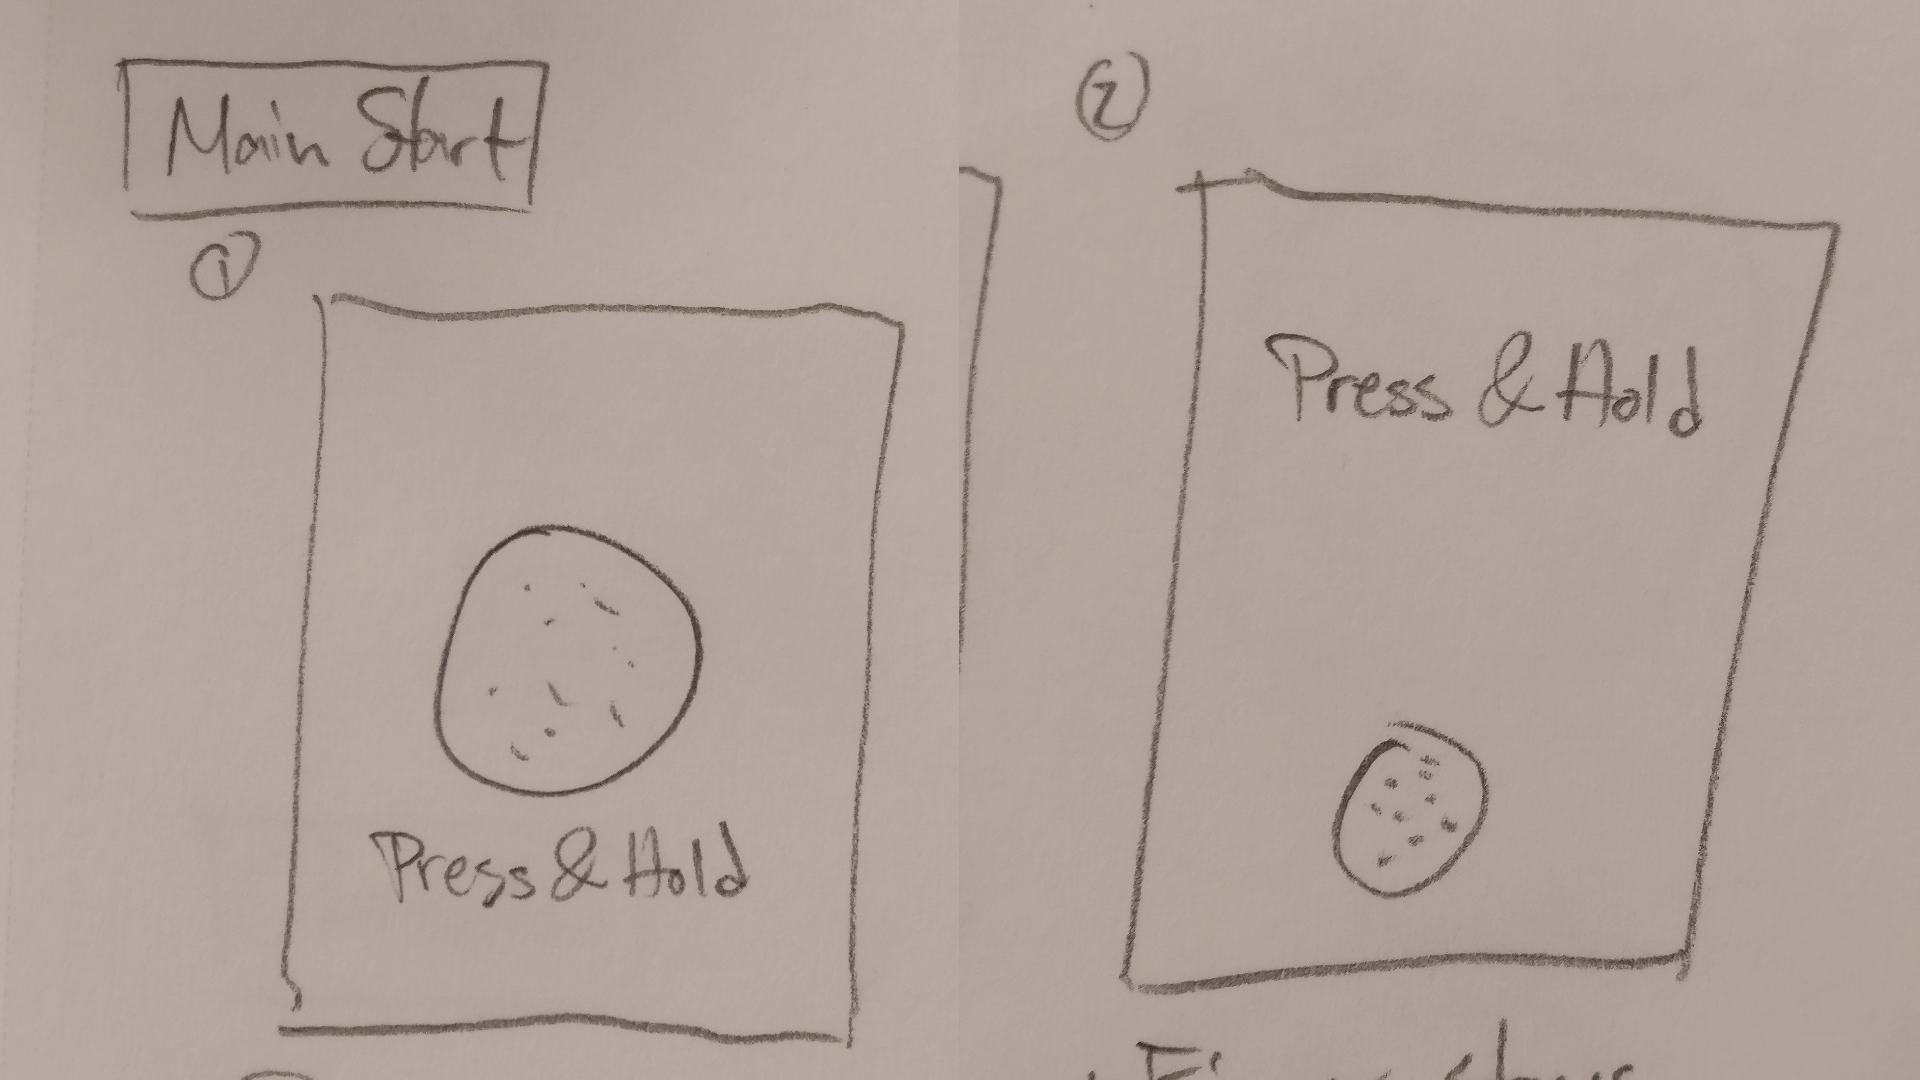 Main Start
①
Press & Hold
②
Press & Hold